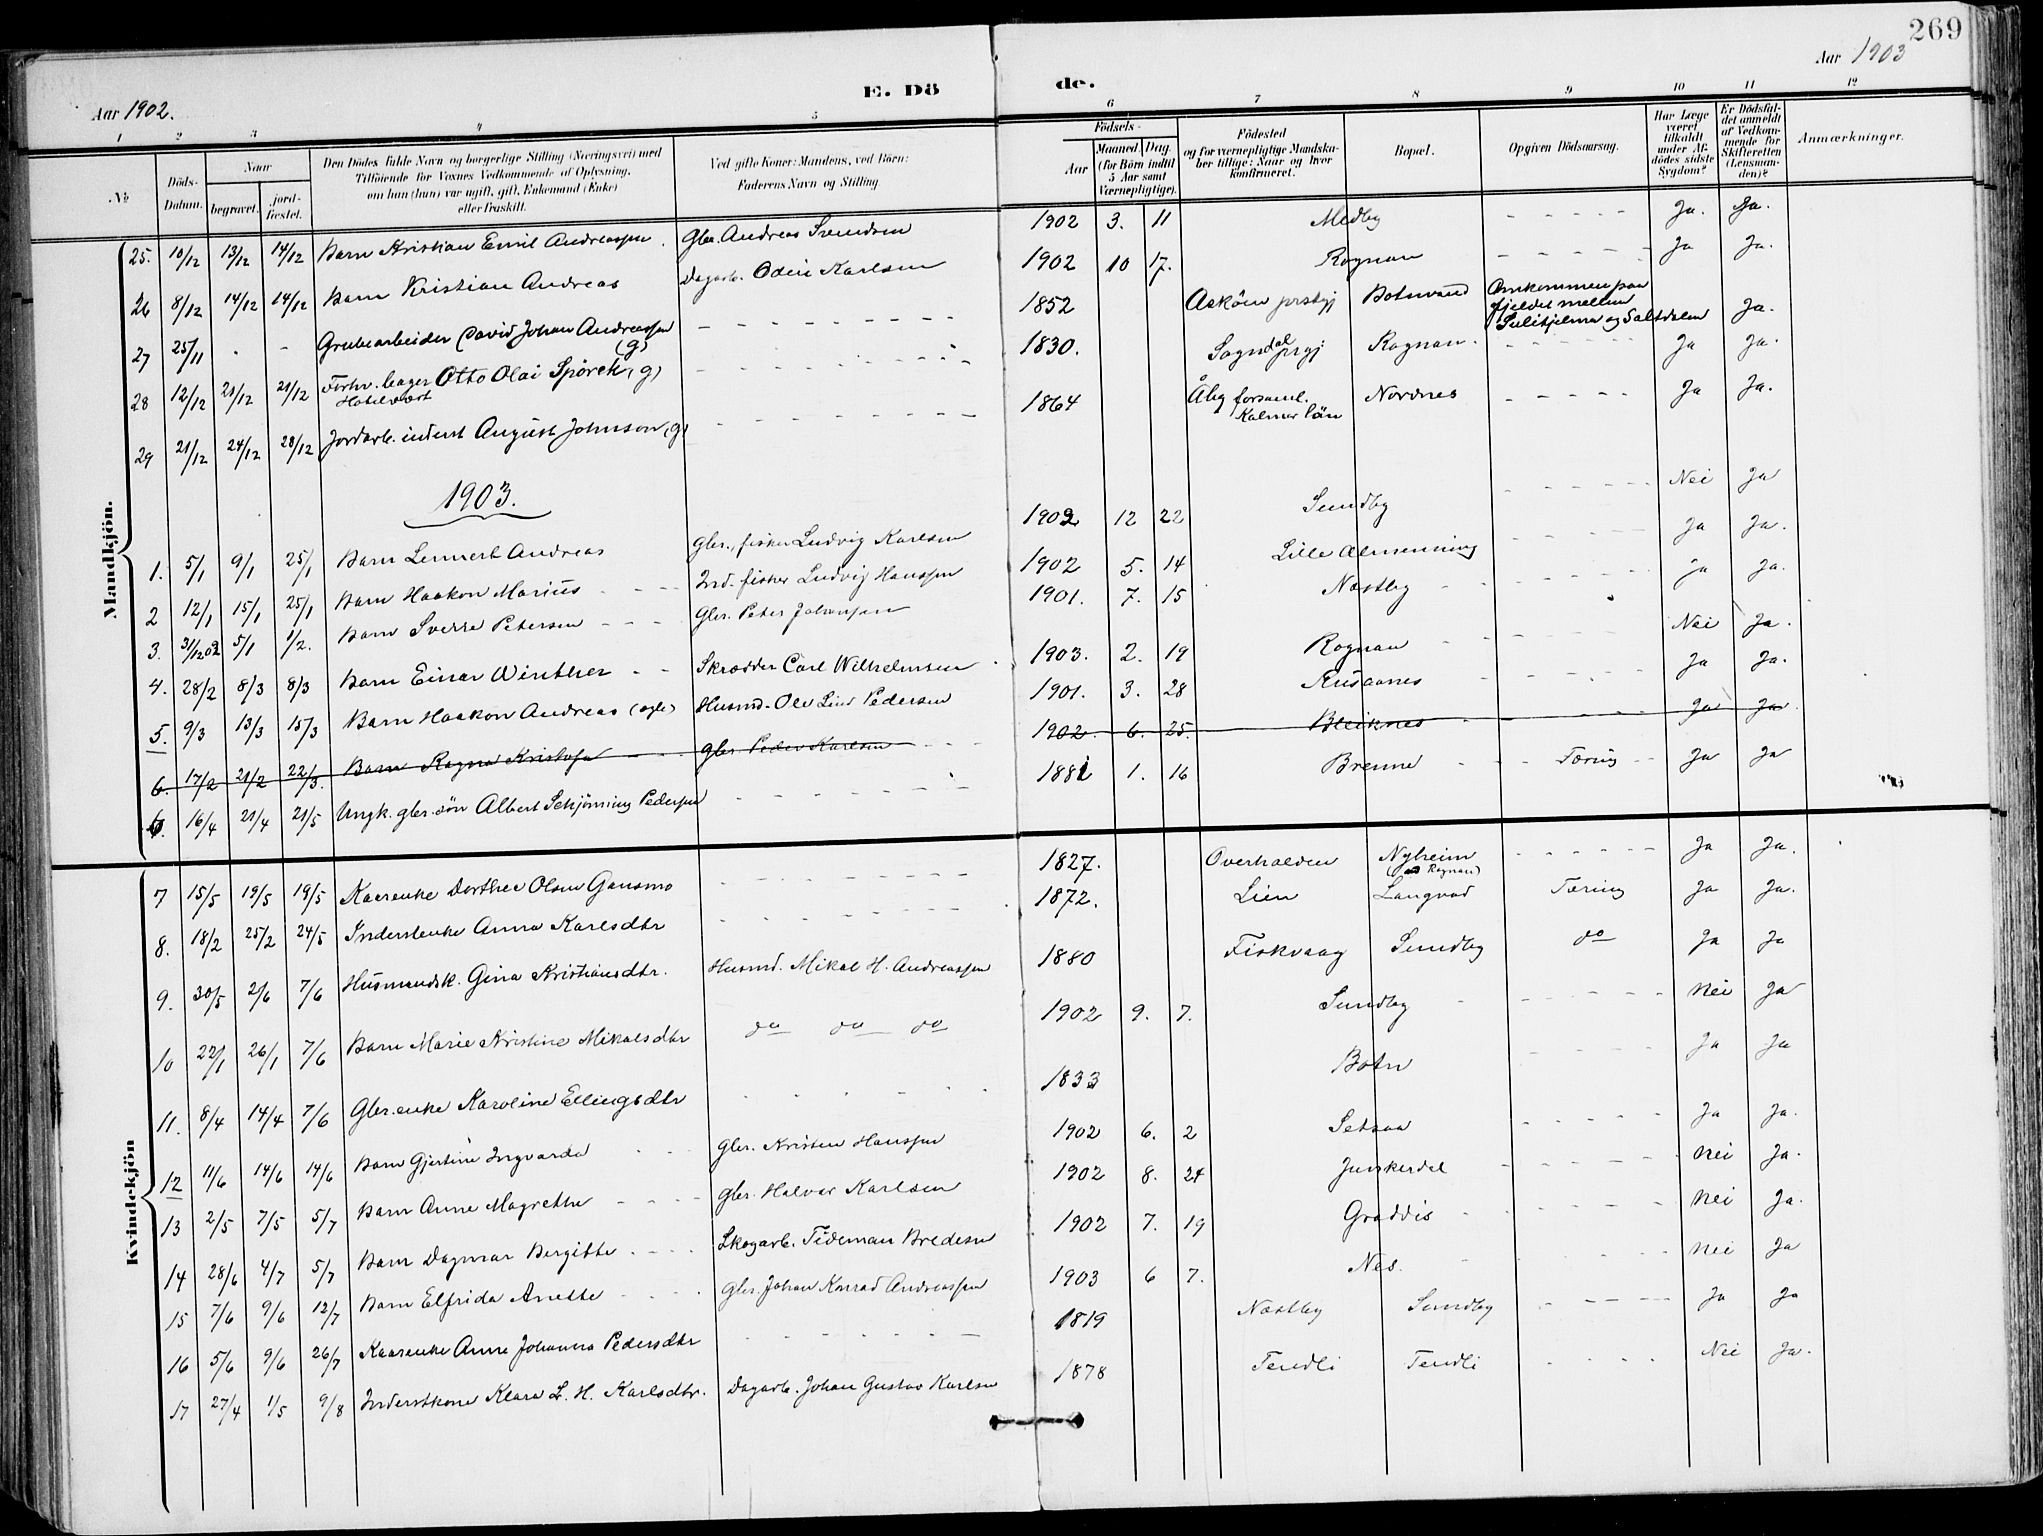 269
Aar 1902.
E. Dö
de.
Aar 1903
1 2 3 4 5 6 7 8 9 10 11 12
No
Döds-Datum.
Naar
begravet.
jord-fæstet.
Den Dödes fulde Navn og borgerlige Stilling (Næringsvei) med
Tilföiende for Voxnes Vedkommende af Oplysning,
om han (hun) var ugift, gift, Enkemand (Enke)
eller fraskilt.
Ved gifte Koner: Mandens, ved Börn:
Faderens Navn og Stilling
Födsels-
Aar
Maaned. Dag.
(for Börn indtil
5 Aar samt
Værnepligtige).
Födested
og for værnepligtige Mandska-
ber tillige: Naar og hvor
konfirmeret.
Bopæl.
Opgiven Dödsaarsag.
Har Læge
været
tilkaldt
under Af-
dödes sidste
Sygdom?
Er Dödsfal-
det anmeldt
af Vedkom-
mende for
Skifteretten
(Lensman-
den)?
Anmærkninger.
Mandkjön.
25. 10/12 13/12 14/12 Barn Kristian Emil Andreassen. Gbr. Andreas Svendsen 1902 3. 11 Medby - - - - - Ja. Ja.
26 8/12 14/12 14/12 Barn Kristian Andreas Dagarb. Odin Karlsen 1902 10 17. Rognan - - - - - Ja Ja.
27 25/11 - - Grubearbeider David Johan Andreassen (g) - - - - 1852 Asköen prstgj Botnvand Omkommen paa fjeldet mellem Sulitjelma og Saltdalen Ja.
28 12/12 21/12 21/12 Forhv. bager Otto Olai Spörck (g) Hotelvært - - - - 1830. Sogndal prgj Rognan. - - - - Ja Ja.
29 21/12 24/12 28/12 Jordarb. inderst August Johnson (g) - - - - 1864 Åby forsaml. Kalmar län Nordnes - - - - Ja Ja.
1903.
1. 5/1 9/1 25/1 Barn Lennert Andreas Gbr., fisker Ludvig Karlsen 1902 12 22 Sundby - - - - Nei Ja
2 12/1 15/1 25/1 Barn Haakon Marius - - - Ind. fisker Ludvig Hanssen 1902 5. 14 Lille Almenning - - - - Ja Ja.
3. 31/12 02 5/1 1/2. Barn Sverre Petersen - - - Gbr. Peter Johansen 1901. 7. 15 Næstby - - - - Ja Ja.
4. 28/2 8/3 8/3 Barn Einar Winther - - Skrædder Carl Wilhelmsen 1903. 2. 19 Rognan - - - - Nei Ja.
5. 9/3 13/3 15/3 Barn Haakon Andreas (ægte) Husmd. Ole Lind Pedersen 1901. 3. 28 Rusaanes - - - - Ja Ja.
6. 17/2 21/2 22/3. Barn Ragna Kristofa - - Gbr Peder Karlsen 1902. 6. 25. Bleiknes - - - - Ja Ja.
6. 16/4 21/4 21/5 Ungk. gbr. sön Albert Schjöning Pedersen - - - - 1881 1. 16 Brenne - - Tæring - - Ja Ja
Kvindekjön
7 15/5 19/5 19/5 Kaarenke Dorthea Olsen Gansmo - - - - 1827. Overhalden Nyheim (Rognan) - - - - Ja Ja.
8. 18/2 25/2 24/5 Inderstenke Anna Karlsdtr - - - - 1872. Lien Langvad Tæring Ja Ja.
9. 30/5 2/6 7/6 Husmandsk. Gina Kristiansdtr. Husmd. Mikal H. Andreassen 1880 Fiskvaag Sundby do Ja Ja
10 22/1 26/1 7/6 Barn Marie Kristine Mikalsdtr do do do 1902 9. 7. Sundby - - - - Nei Ja
11. 8/4 14/4 7/6 Gbr. enke Karoline Ellingsdtr - - - - 1833 Botn - - - - Ja Ja
12 11/6 14/6 14/6 Barn Gjertine Ingvarda - - Gbr. Kristen Hanssen 1902 6. 2 Setsaa - - - - Ja Ja.
13 2/5 7/5 5/7 Barn Anne Magrethe - - - - Gbr. Halvar Karlsen 1902 8. 24 Junkerdal - - - - Nei Ja.
14 28/6 4/7 5/7 Barn Dagmar Bergitte - - - - Skogarb. Tideman Bredesen 1902 7. 19 Graddis - - - - Nei Ja.
15 7/6 9/6 12/7 Barn Elfrida Anette - - - Gbr. Johan Konrad Andreassen 1903 6 7. Nes. - - - - Nei Ja
16 5/6 9/6 26/7 Kaarenke Anne Johanna Pedersdtr - - - - 1819 Næstby Sundby - - - - Ja Ja
17 27/4 1/5 9/8 Inderstkone Klara L. H. Karlsdtr. Dagarb. Johan Gustav Karlsen 1878 Tendli Tendli - - - - Nei Ja.